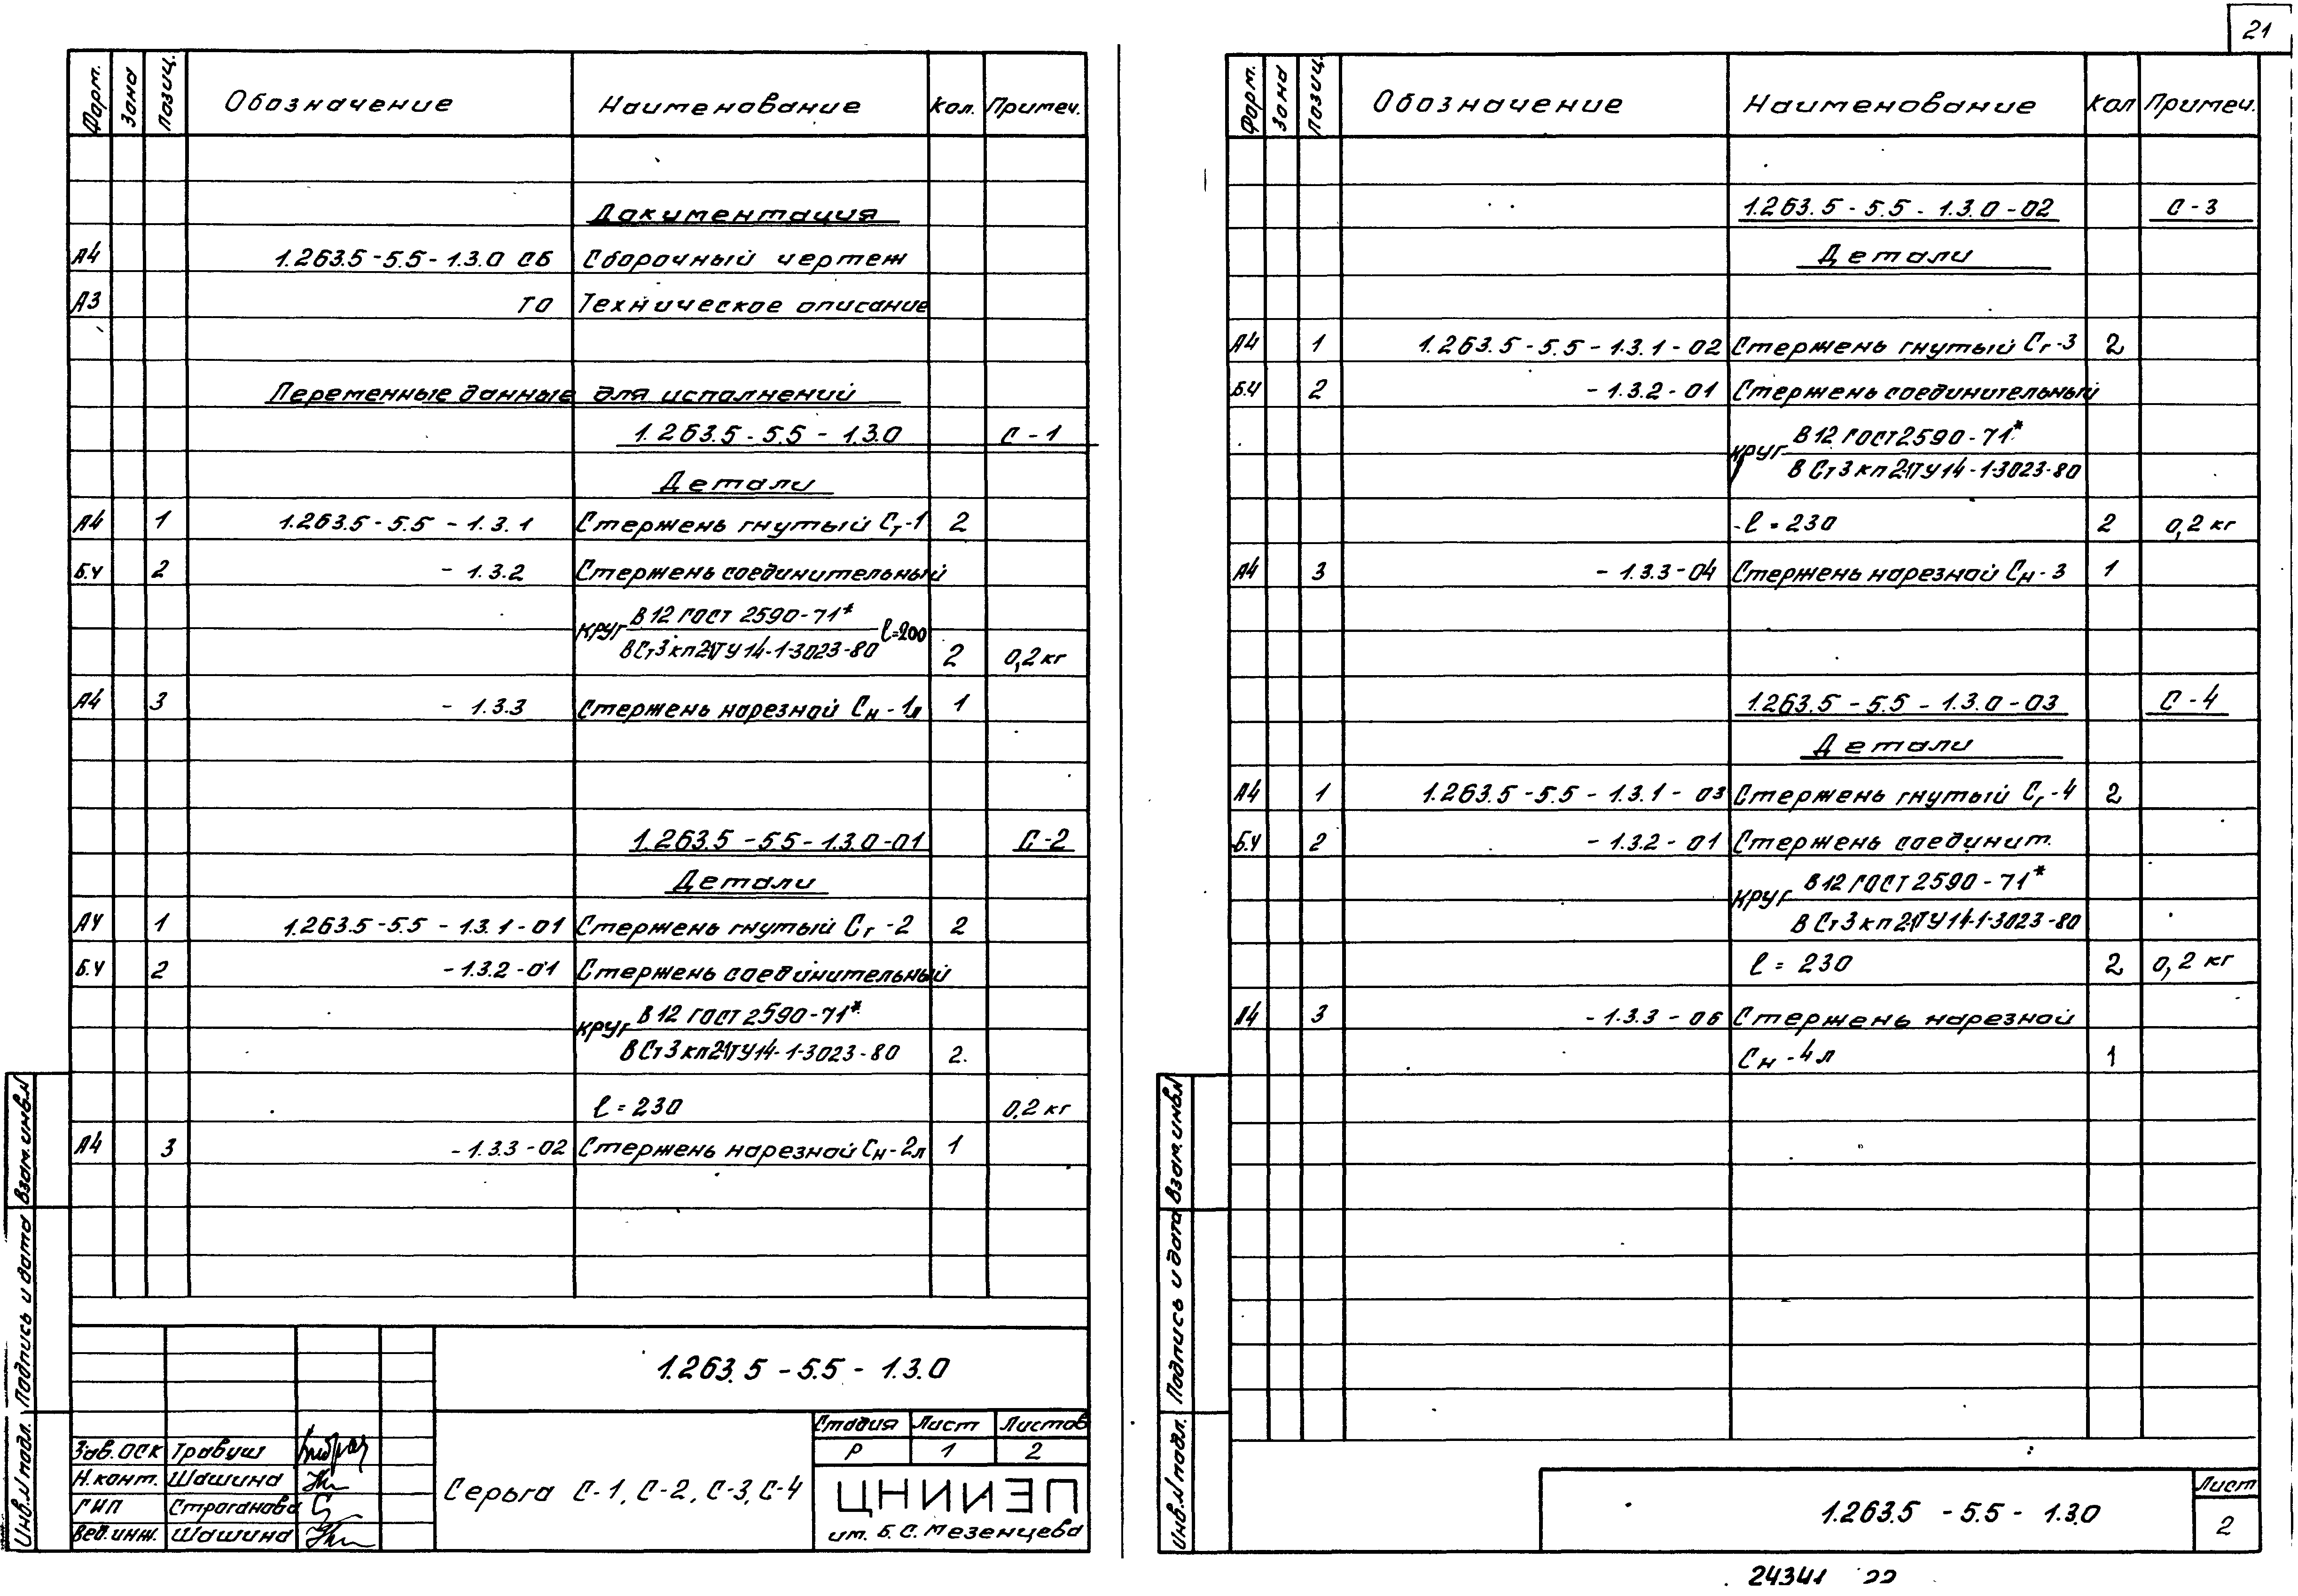 21
Форм. Зона Позиц. Обозначение Наименование Кол. Примеч.
Документация
А4 1.263.5-5.5-1.3.0 СБ Сборочный чертеж
А3 ТО Техническое описание
Переменные данные для исполнений
1.263.5-5.5-1.3.0 С-1
Детали
А4 1 1.263.5-5.5-1.3.1 Стержень гнутый Сг-1 2
Б.Ч 2 -1.3.2 Стержень соединительный
круг В12 ГОСТ 2590-71* l=200
ВСт3кп2-1ТУ14-1-3023-80 2 0,2кг
А4 3 -1.3.3 Стержень нарезной Сн-1л 1
1.263.5-5.5-1.3.0-01 С-2
Детали
А4 1 1.263.5-5.5-1.3.1-01 Стержень гнутый Сг-2 2
Б.Ч 2 -1.3.2-01 Стержень соединительный
круг В12 ГОСТ 2590-71*
ВСт3кп2-1ТУ14-1-3023-80 2.
l=230 0,2кг
А4 3 -1.3.3-02 Стержень нарезной Сн-2л 1
Инв.№ подл. Подпись и дата Взам.инв.№
1.263.5-5.5-1.3.0
Зав. ОСК Травуш
Н.конт. Шашина
ГИП Строганова
Вед.инж. Шашина
Серьга С-1, С-2, С-3, С-4
Стадия Лист Листов
Р 1 2
ЦНИИЭП
им. Б.С. Мезенцева
Форм. Зона Позиц. Обозначение Наименование Кол Примеч.
1.263.5-5.5-1.3.0-02 С-3
Детали
А4 1 1.263.5-5.5-1.3.1-02 Стержень гнутый Сг-3 2
Б.Ч 2 -1.3.2-01 Стержень соединительный
круг В12 ГОСТ 2590-71*
ВСт3кп2-1ТУ14-1-3023-80
l=230 2 0,2кг
А4 3 -1.3.3-04 Стержень нарезной Сн-3 1
1.263.5-5.5-1.3.0-03 С-4
Детали
А4 1 1.263.5-5.5-1.3.1-03 Стержень гнутый Сг-4 2
Б.Ч 2 -1.3.2-01 Стержень соединит.
круг В12 ГОСТ 2590-71*
ВСт3кп2-1ТУ14-1-3023-80
l=230 2 0,2кг
А4 3 -1.3.3-06 Стержень нарезной
Сн-4л 1
Инв.№ подл. Подпись и дата Взам.инв.№
1.263.5-5.5-1.3.0
Лист
2
24341 22